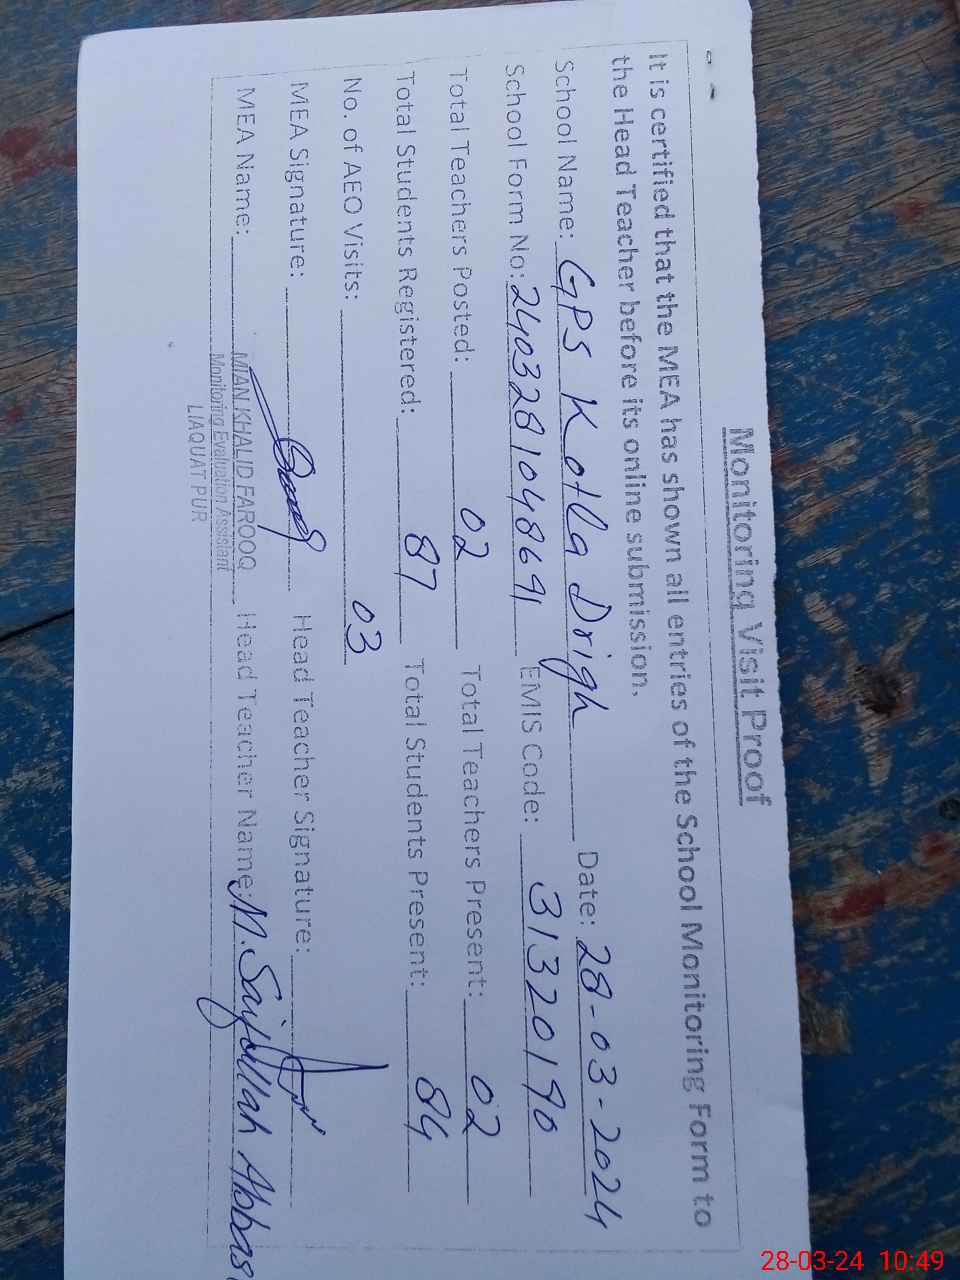 Monitoring Visit Proof
It is certified that the MEA has shown all entries of the School Monitoring Form to
the Head Teacher before its online submission.
School Name: GPS Kotla Drigh Date: 28-03-2024
School Form No: 2403281048691 EMIS Code: 31320190
Total Teachers Posted: 02 Total Teachers Present: 02
Total Students Registered: 87 Total Students Present: 84
No. of AEO Visits: 03
MEA Signature: Head Teacher Signature:
MEA Name: MIAN KHALID FAROOQ Head Teacher Name: M. Saifullah Abbas
Monitoring Evaluation Assistant
LIAQUAT PUR
28-03-24 10:49